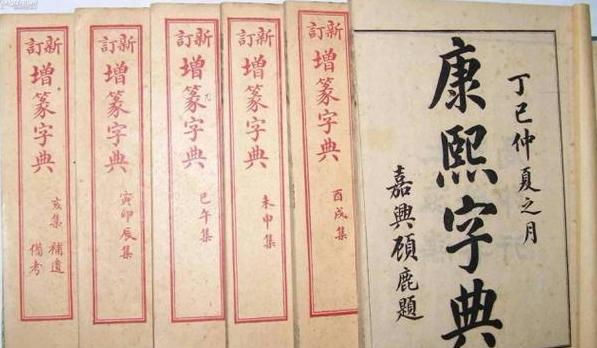 丁巳仲夏之月
康熙字典
嘉興頋鹿題
新訂
增篆字典
酉戌集
新訂
增篆字典
未申集
新訂
增篆字典
巳午集
新訂
增篆字典
寅卯辰集
新訂
增篆字典
亥集 補遺
備考